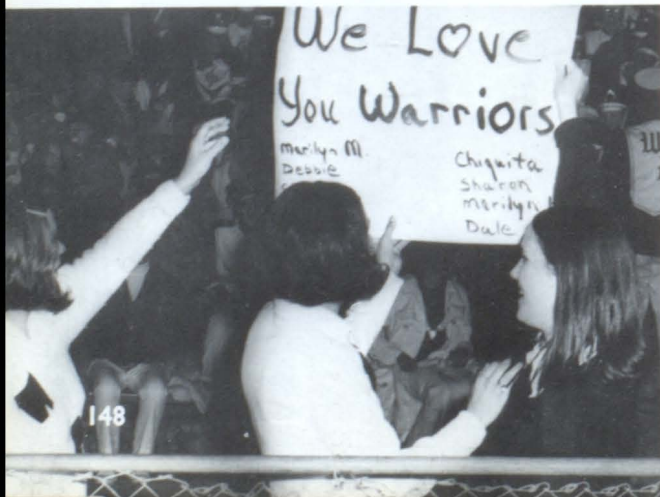 We Love
You Warriors
Marilyn M.
Debbie
Chiquita
Sharon
Marilyn
Dale
148
W